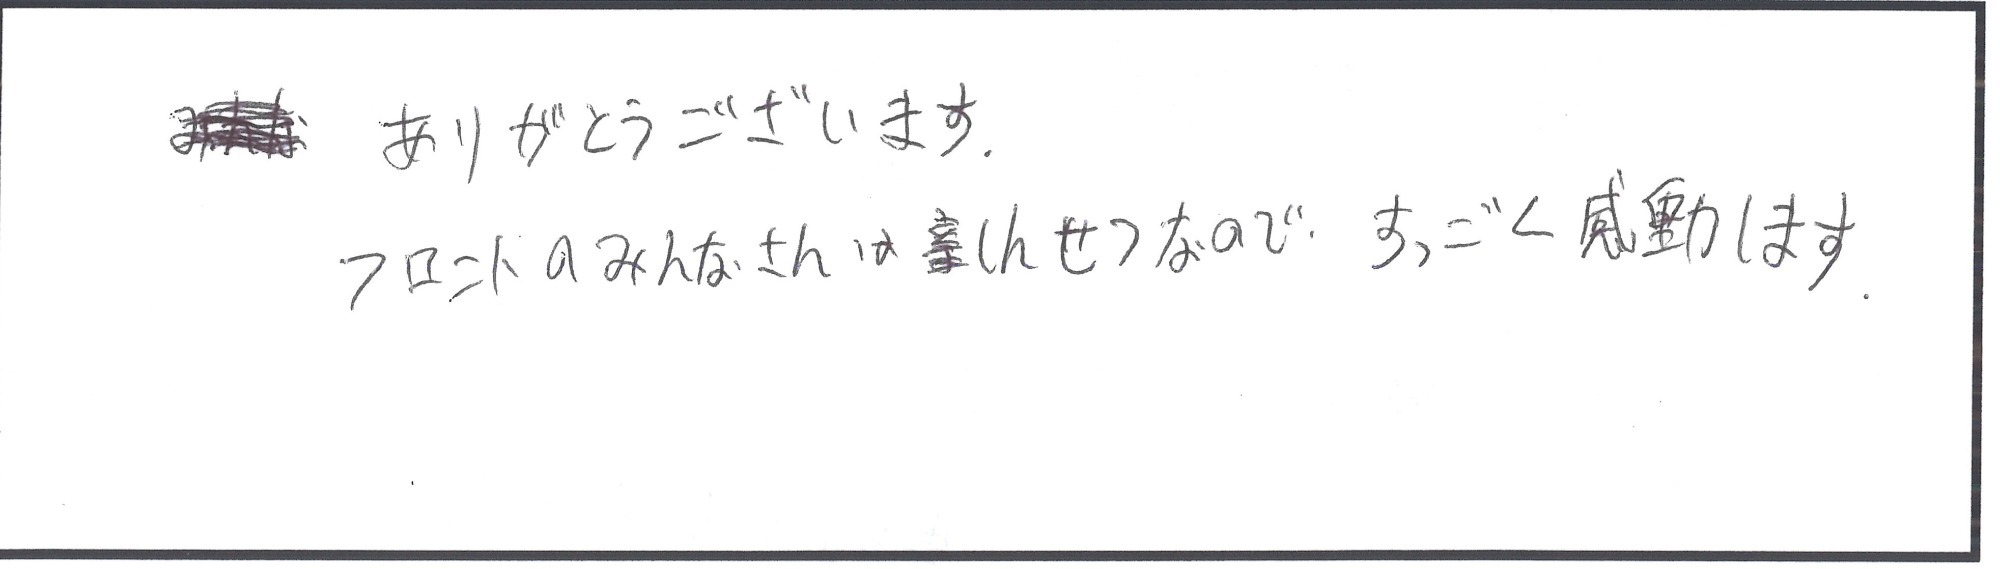 ありがとうございます.
フロントのみんなさんはしんせつなので. すっごく感動します.